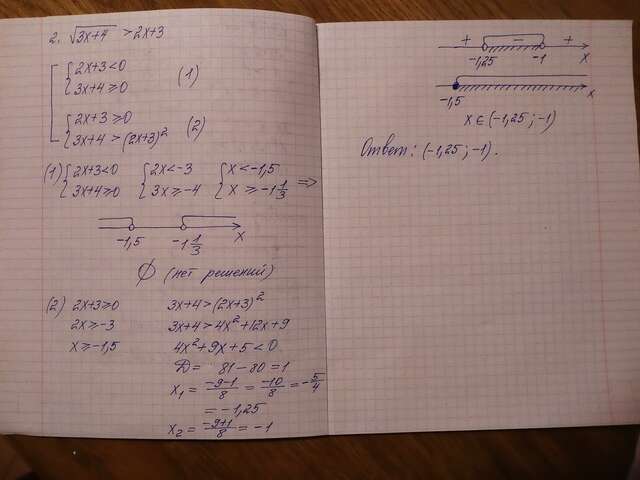 2. √(3x+4) > 2x+3
[ { 2x+3<0
3x+4≥0 (1)
{ 2x+3≥0
3x+4>(2x+3)² (2)
(1) { 2x+3<0 { 2x<-3 { x<-1,5
{ 3x+4≥0 { 3x≥-4 { x≥-1 1/3 =>
-1,5 -1 1/3 x
∅ (нет решений)
(2) 2x+3≥0 3x+4>(2x+3)²
2x≥-3 3x+4>4x²+12x+9
x≥-1,5 4x²+9x+5<0
D= 81-80=1
x₁ = (-9-1)/8 = -10/8 = -5/4
= -1,25
x₂ = (-9+1)/8 = -1
+ - +
-1,25 -1 x
-1,5 x
x∈(-1,25; -1)
Ответ: (-1,25; -1).